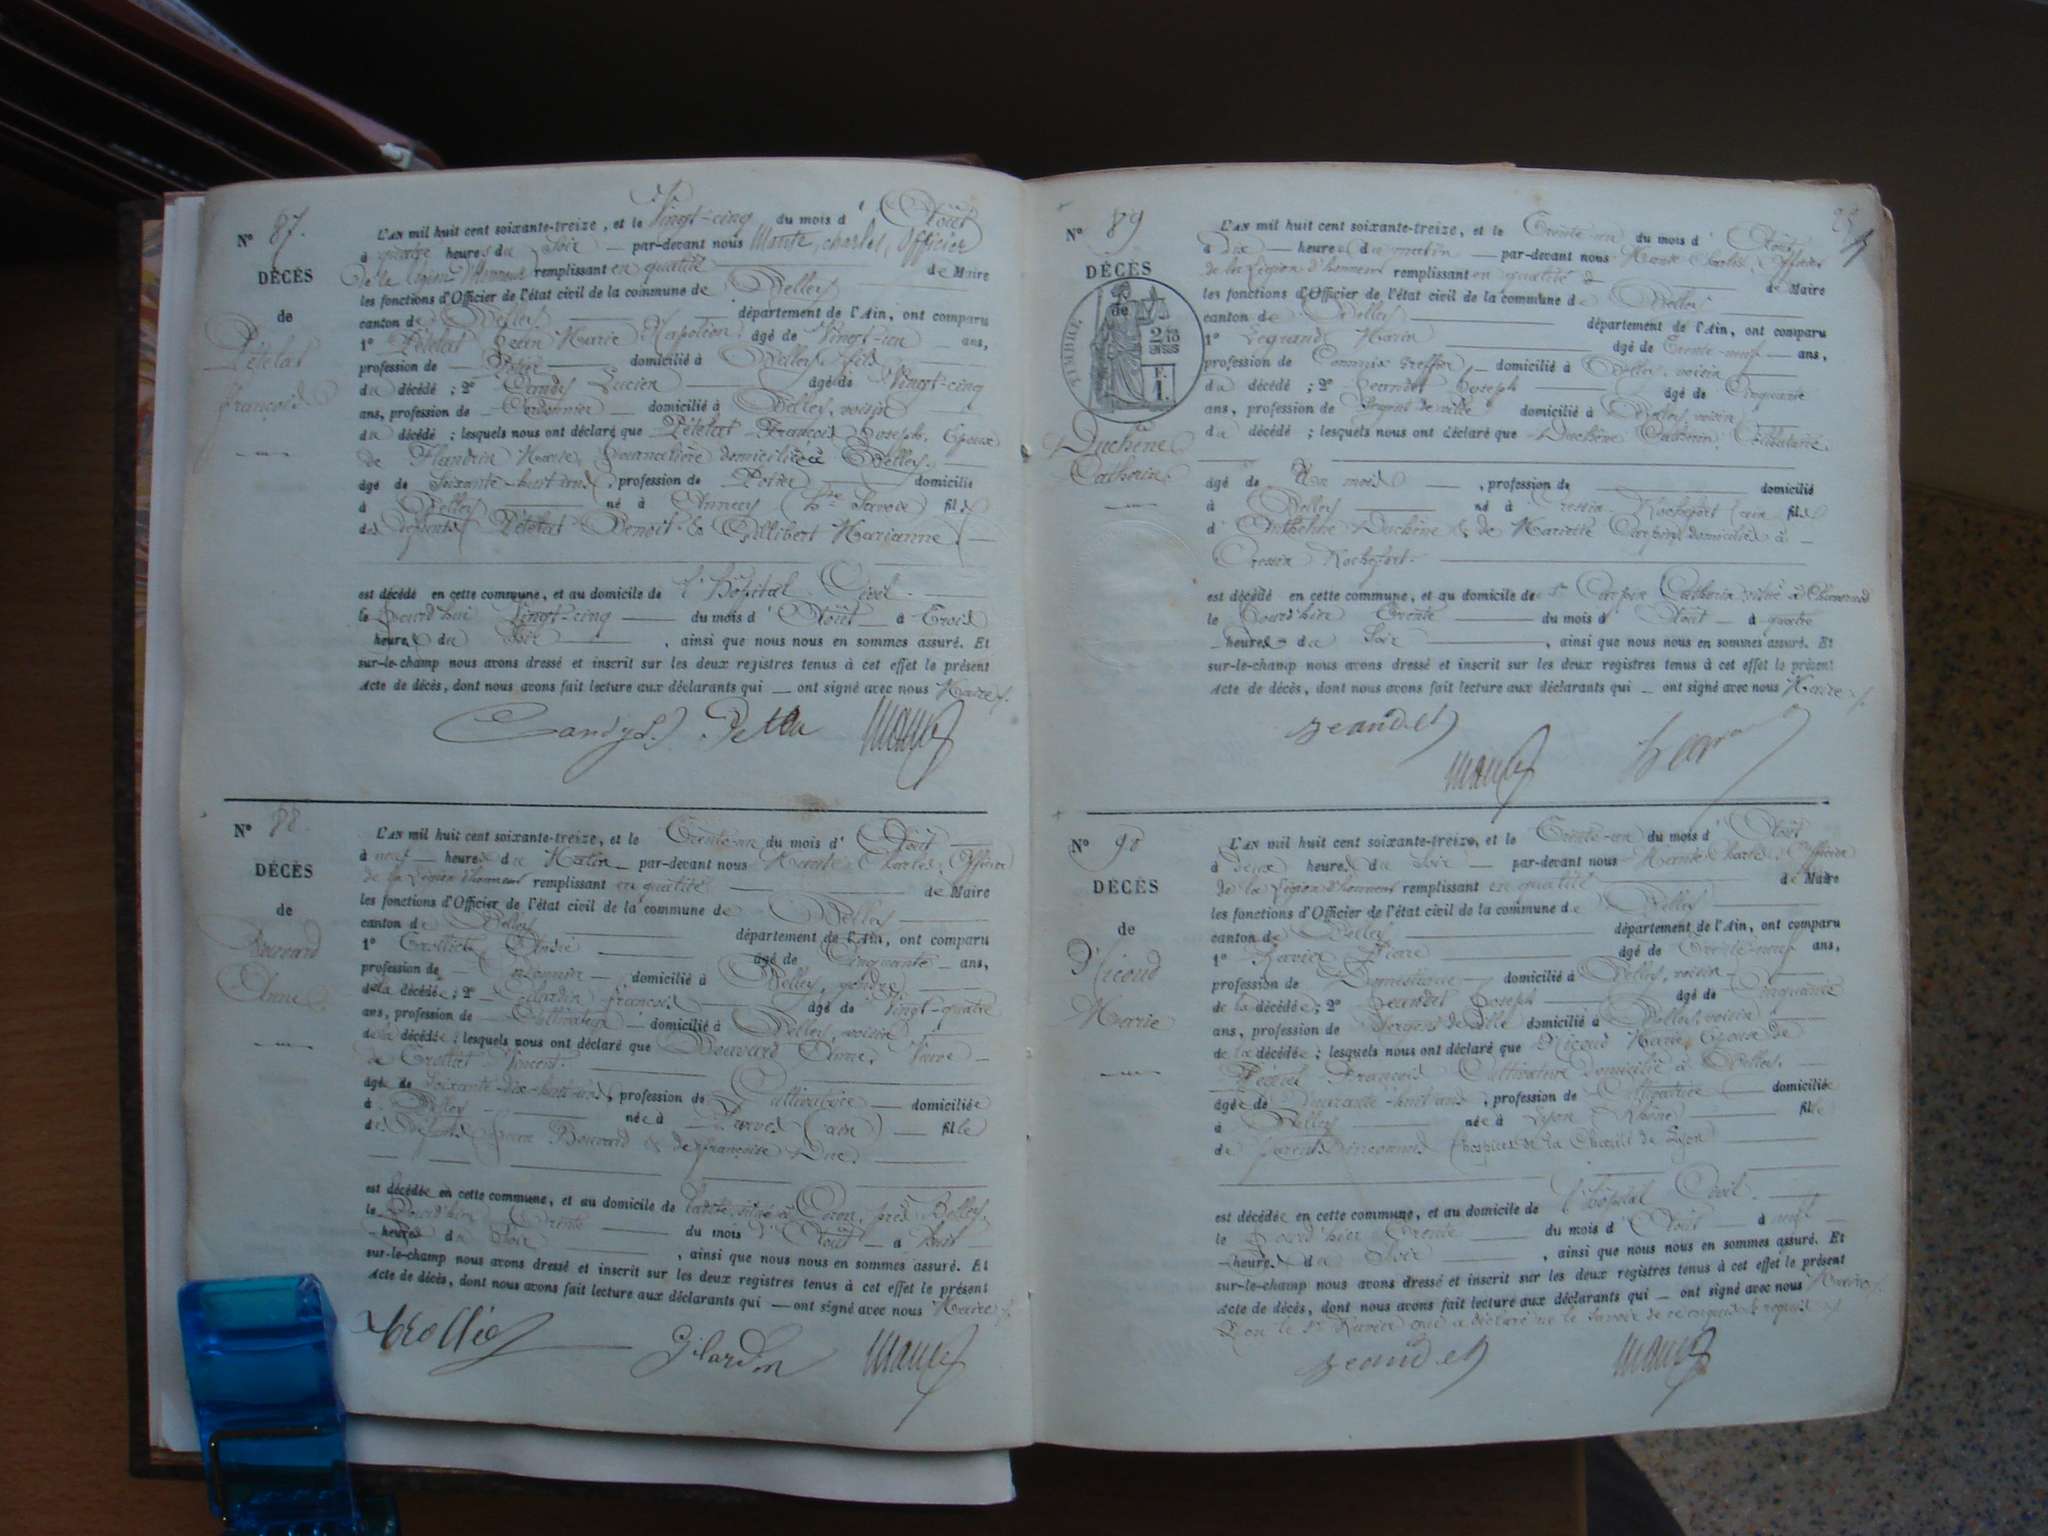 N° 87.
DÉCÈS
de
Pételat
François
L'AN mil huit cent soixante-treize, et le Vingt-cinq du mois d'Août
à quatre heures du Soir par-devant nous Charles, Officier
de la Légion d'honneur remplissant en qualité de Maire
les fonctions d'Officier de l'état civil de la commune de Belley
canton de Belley département de l'Ain, ont comparu
1° Pételat Jean Marie Napoléon âgé de Vingt-un ans,
profession de domicilié à Belley, fils
du décédé ; 2° Candy Lucien âgé de Vingt-cinq
ans, profession de Cordonnier domicilié à Belley, voisin
du décédé ; lesquels nous ont déclaré que Pételat François Joseph, Epoux
de Flandrin Marie, domiciliée à Belley.
âgé de Soixante-huit ans, profession de Potier domicilié
à Belley né à Annecy (Hte Savoie) fils
des défunts Pételat Benoit & Gillibert Marianne
est décédé en cette commune, et au domicile de l'Hôpital Civil
le Jourd'hui Vingt-cinq du mois d'Août à Trois
heures du Soir, ainsi que nous nous en sommes assuré. Et
sur-le-champ nous avons dressé et inscrit sur les deux registres tenus à cet effet le présent
Acte de décès, dont nous avons fait lecture aux déclarants qui ont signé avec nous Maire
Candy
N° 88.
DÉCÈS
de
Bouvard
Anne
L'AN mil huit cent soixante-treize, et le Trente-un du mois d'Août
à neuf heures du Matin par-devant nous Charles, Officier
de la Légion d'honneur remplissant en qualité de Maire
les fonctions d'Officier de l'état civil de la commune de Belley
canton de Belley département de l'Ain, ont comparu
1° Trolliet André âgé de Cinquante ans,
profession de domicilié à Belley, gendre
de la décédée ; 2° Gilardin François âgé de Vingt-quatre
ans, profession de Cultivateur domicilié à Belley, voisin
de la décédée ; lesquels nous ont déclaré que Bouvard Anne, Veuve
de Trolliet Vincent.
âgée de Soixante-dix-huit ans, profession de Cultivatrice domiciliée
à Belley née à (Ain) fille
des défunts Bouvard & de Françoise Duc.
est décédée en cette commune, et au domicile de situé à près Belley,
le Jourd'hier Trente du mois d'Août à
heures du Soir, ainsi que nous nous en sommes assuré. Et
sur-le-champ nous avons dressé et inscrit sur les deux registres tenus à cet effet le présent
Acte de décès, dont nous avons fait lecture aux déclarants qui ont signé avec nous Maire
Trolliet Gilardin
N° 89
DÉCÈS
de
TIMBRE
Duchêne
Catherin
L'AN mil huit cent soixante-treize, et le Trente-un du mois d'Août
à Dix heures du matin par-devant nous Charles, Officier
de la Légion d'honneur remplissant en qualité de Maire
les fonctions d'Officier de l'état civil de la commune de Belley
canton de Belley département de l'Ain, ont comparu
1° Legrand Marin âgé de Trente-neuf ans,
profession de Commis Greffier domicilié à Belley, voisin
du décédé ; 2° Jeandet Joseph âgé de Cinquante
ans, profession de Sergent de ville domicilié à Belley, voisin
du décédé ; lesquels nous ont déclaré que Duchêne Catherin, Célibataire
âgé de Un mois, profession de domicilié
à Belley né à Cressin Rochefort (Ain) fils
d'Anthelme Duchêne & de Mariette Carpin, domiciliés à
Cressin Rochefort.
est décédé en cette commune, et au domicile de Sr Carpin Catherin situé à
le Jourd'hier Trente du mois d'Août à quatre
heures du Soir, ainsi que nous nous en sommes assuré. Et
sur-le-champ nous avons dressé et inscrit sur les deux registres tenus à cet effet le présent
Acte de décès, dont nous avons fait lecture aux déclarants qui ont signé avec nous Maire
Jeandet
N° 90
DÉCÈS
de
Nicoud
Marie
L'AN mil huit cent soixante-treize, et le Trente-un du mois d'Août
à Deux heures du Soir par-devant nous Charles, Officier
de la Légion d'honneur remplissant en qualité de Maire
les fonctions d'Officier de l'état civil de la commune de Belley
canton de Belley département de l'Ain, ont comparu
1° Xavier Pierre âgé de Trente-neuf ans,
profession de Domestique domicilié à Belley, voisin
de la décédée ; 2° Jeandet Joseph âgé de Cinquante
ans, profession de Sergent de ville domicilié à Belley, voisin
de la décédée ; lesquels nous ont déclaré que Nicoud Marie, Epouse de
François Cultivateur domicilié à Belley.
âgée de Quarante-huit ans, profession de Cultivatrice domiciliée
à Belley née à Lyon (Rhône) fille
de parents inconnus (hospices de la Charité de Lyon)
est décédée en cette commune, et au domicile de l'hôpital Civil
le Jourd'hier Trente du mois d'Août à neuf
heures du Soir, ainsi que nous nous en sommes assuré. Et
sur-le-champ nous avons dressé et inscrit sur les deux registres tenus à cet effet le présent
Acte de décès, dont nous avons fait lecture aux déclarants qui ont signé avec nous Maire
Non le Sr Xavier qui a déclaré ne le savoir de ce enquis & requis
Jeandet